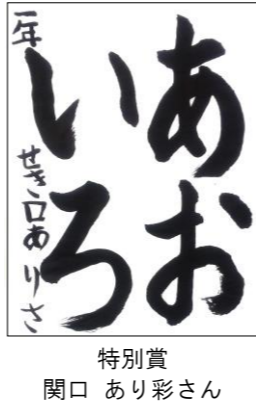 あお
いろ
一年 せき口ありさ
特別賞
関口 あり彩さん